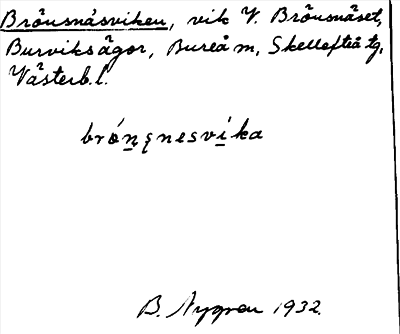 Brånsnäsviken, vik V. Brånsnäset,
Burviksägor, Bureå m, Skellefteå tg,
Västerb. l.
brón̲s̨nesví̲ka
B. Nygren 1932.